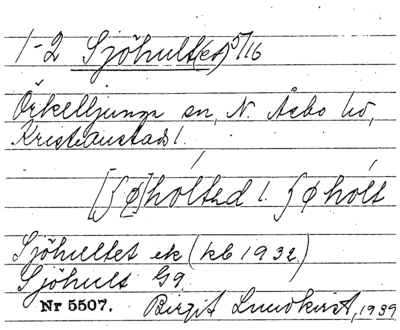 1-2 Sjöhult(et) 5/16
Örkelljunga sn, N. Åsbo hd,
Kristianstads l.
[ʃø]hólted l. ʃøhólt
Sjöhultet ek (kb 1932.)
Sjöhult G9.
Nr 5507. Birgit Lundkvist, 1939